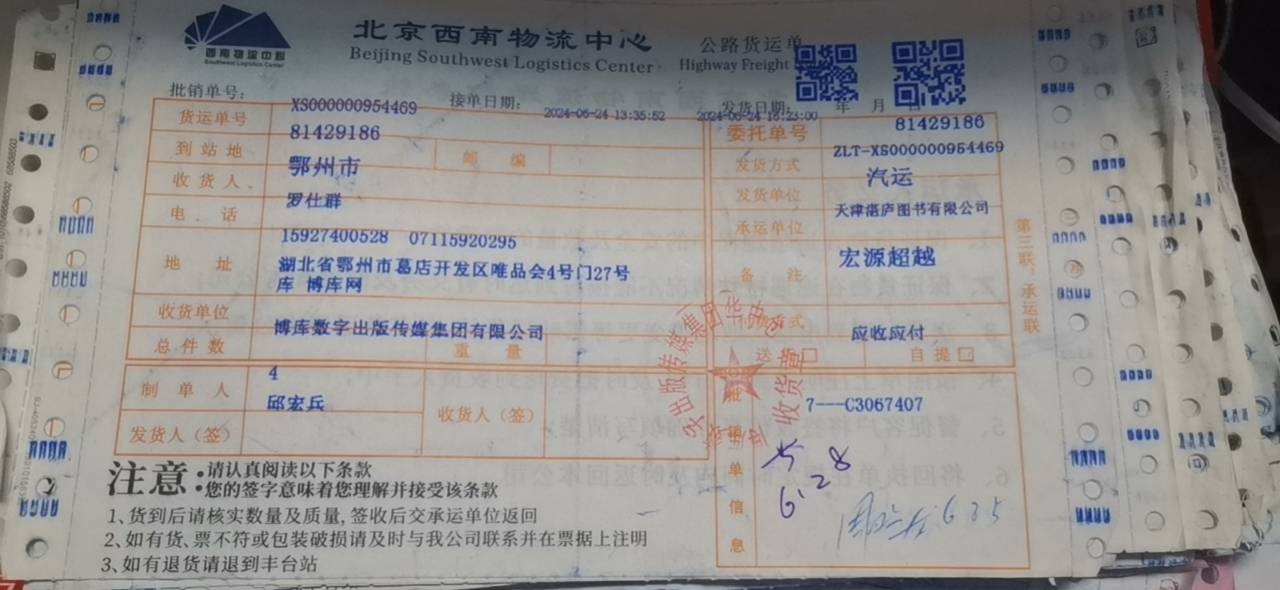 西南物流中心
Southwest Logistics Center
北京西南物流中心
Beijing Southwest Logistics Center
公路货运单
Highway Freight
批销单号:
XS000000954469
接单日期:
2024-06-24 13:35:52
发货日期:
年 月 日
2024-06-24 16:23:00
货运单号
81429186
委托单号
81429186
到站地
鄂州市
邮 编
发货方式
ZLT-XS000000954469
汽运
收货人
罗仕群
发货单位
天津湛庐图书有限公司
电 话
15927400528 07115920295
承运单位
宏源超越
地 址
湖北省鄂州市葛店开发区唯品会4号门27号
库 博库网
备 注
收货单位
博库数字出版传媒集团有限公司
应收应付
总件数
4
重 量
送货
自提
制单人
邱宏兵
收货人(签)
发货人(签)
批销单信息
7---C3067407
收货章
6.2
8
6 25
第三联:承运联
注意:
请认真阅读以下条款
您的签字意味着您理解并接受该条款
1、货到后请核实数量及质量,签收后交承运单位返回
2、如有货、票不符或包装破损请及时与我公司联系并在票据上注明
3、如有退货请退到丰台站